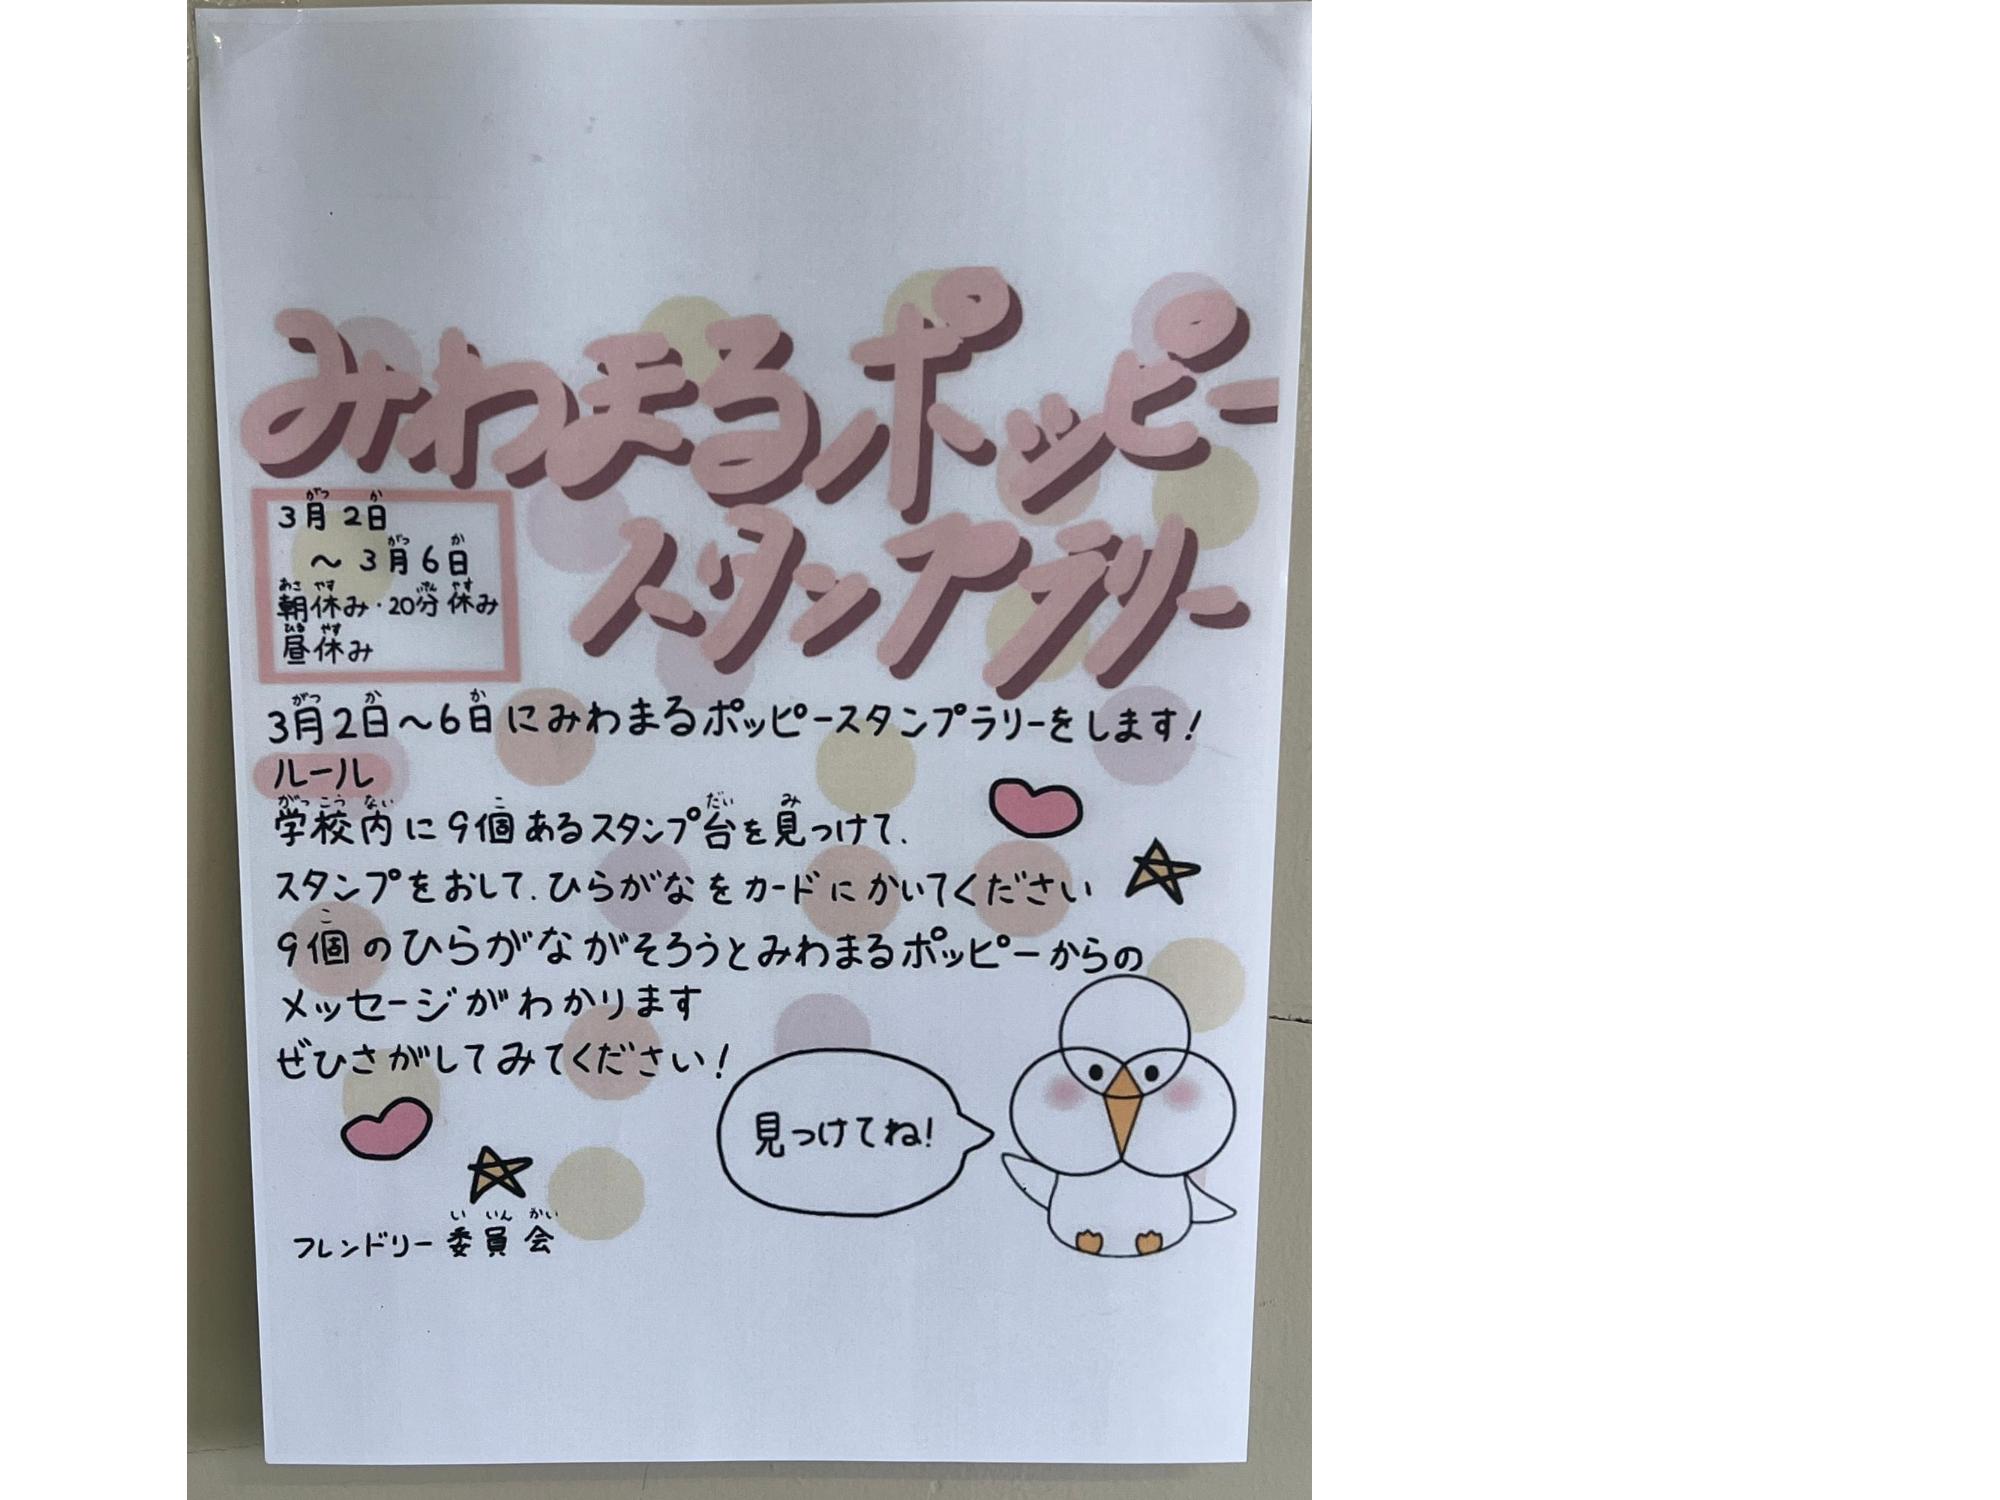 みわまるポッピー
スタンプラリー
3月2日
～3月6日
朝休み・20分休み
昼休み
3月2日～6日にみわまるポッピースタンプラリーをします！
ルール
学校内に9個あるスタンプ台を見つけて、
スタンプをおして、ひらがなをカードにかいてください
9個のひらがながそろうとみわまるポッピーからの
メッセージがわかります
ぜひさがしてみてください！
見つけてね！
フレンドリー委員会